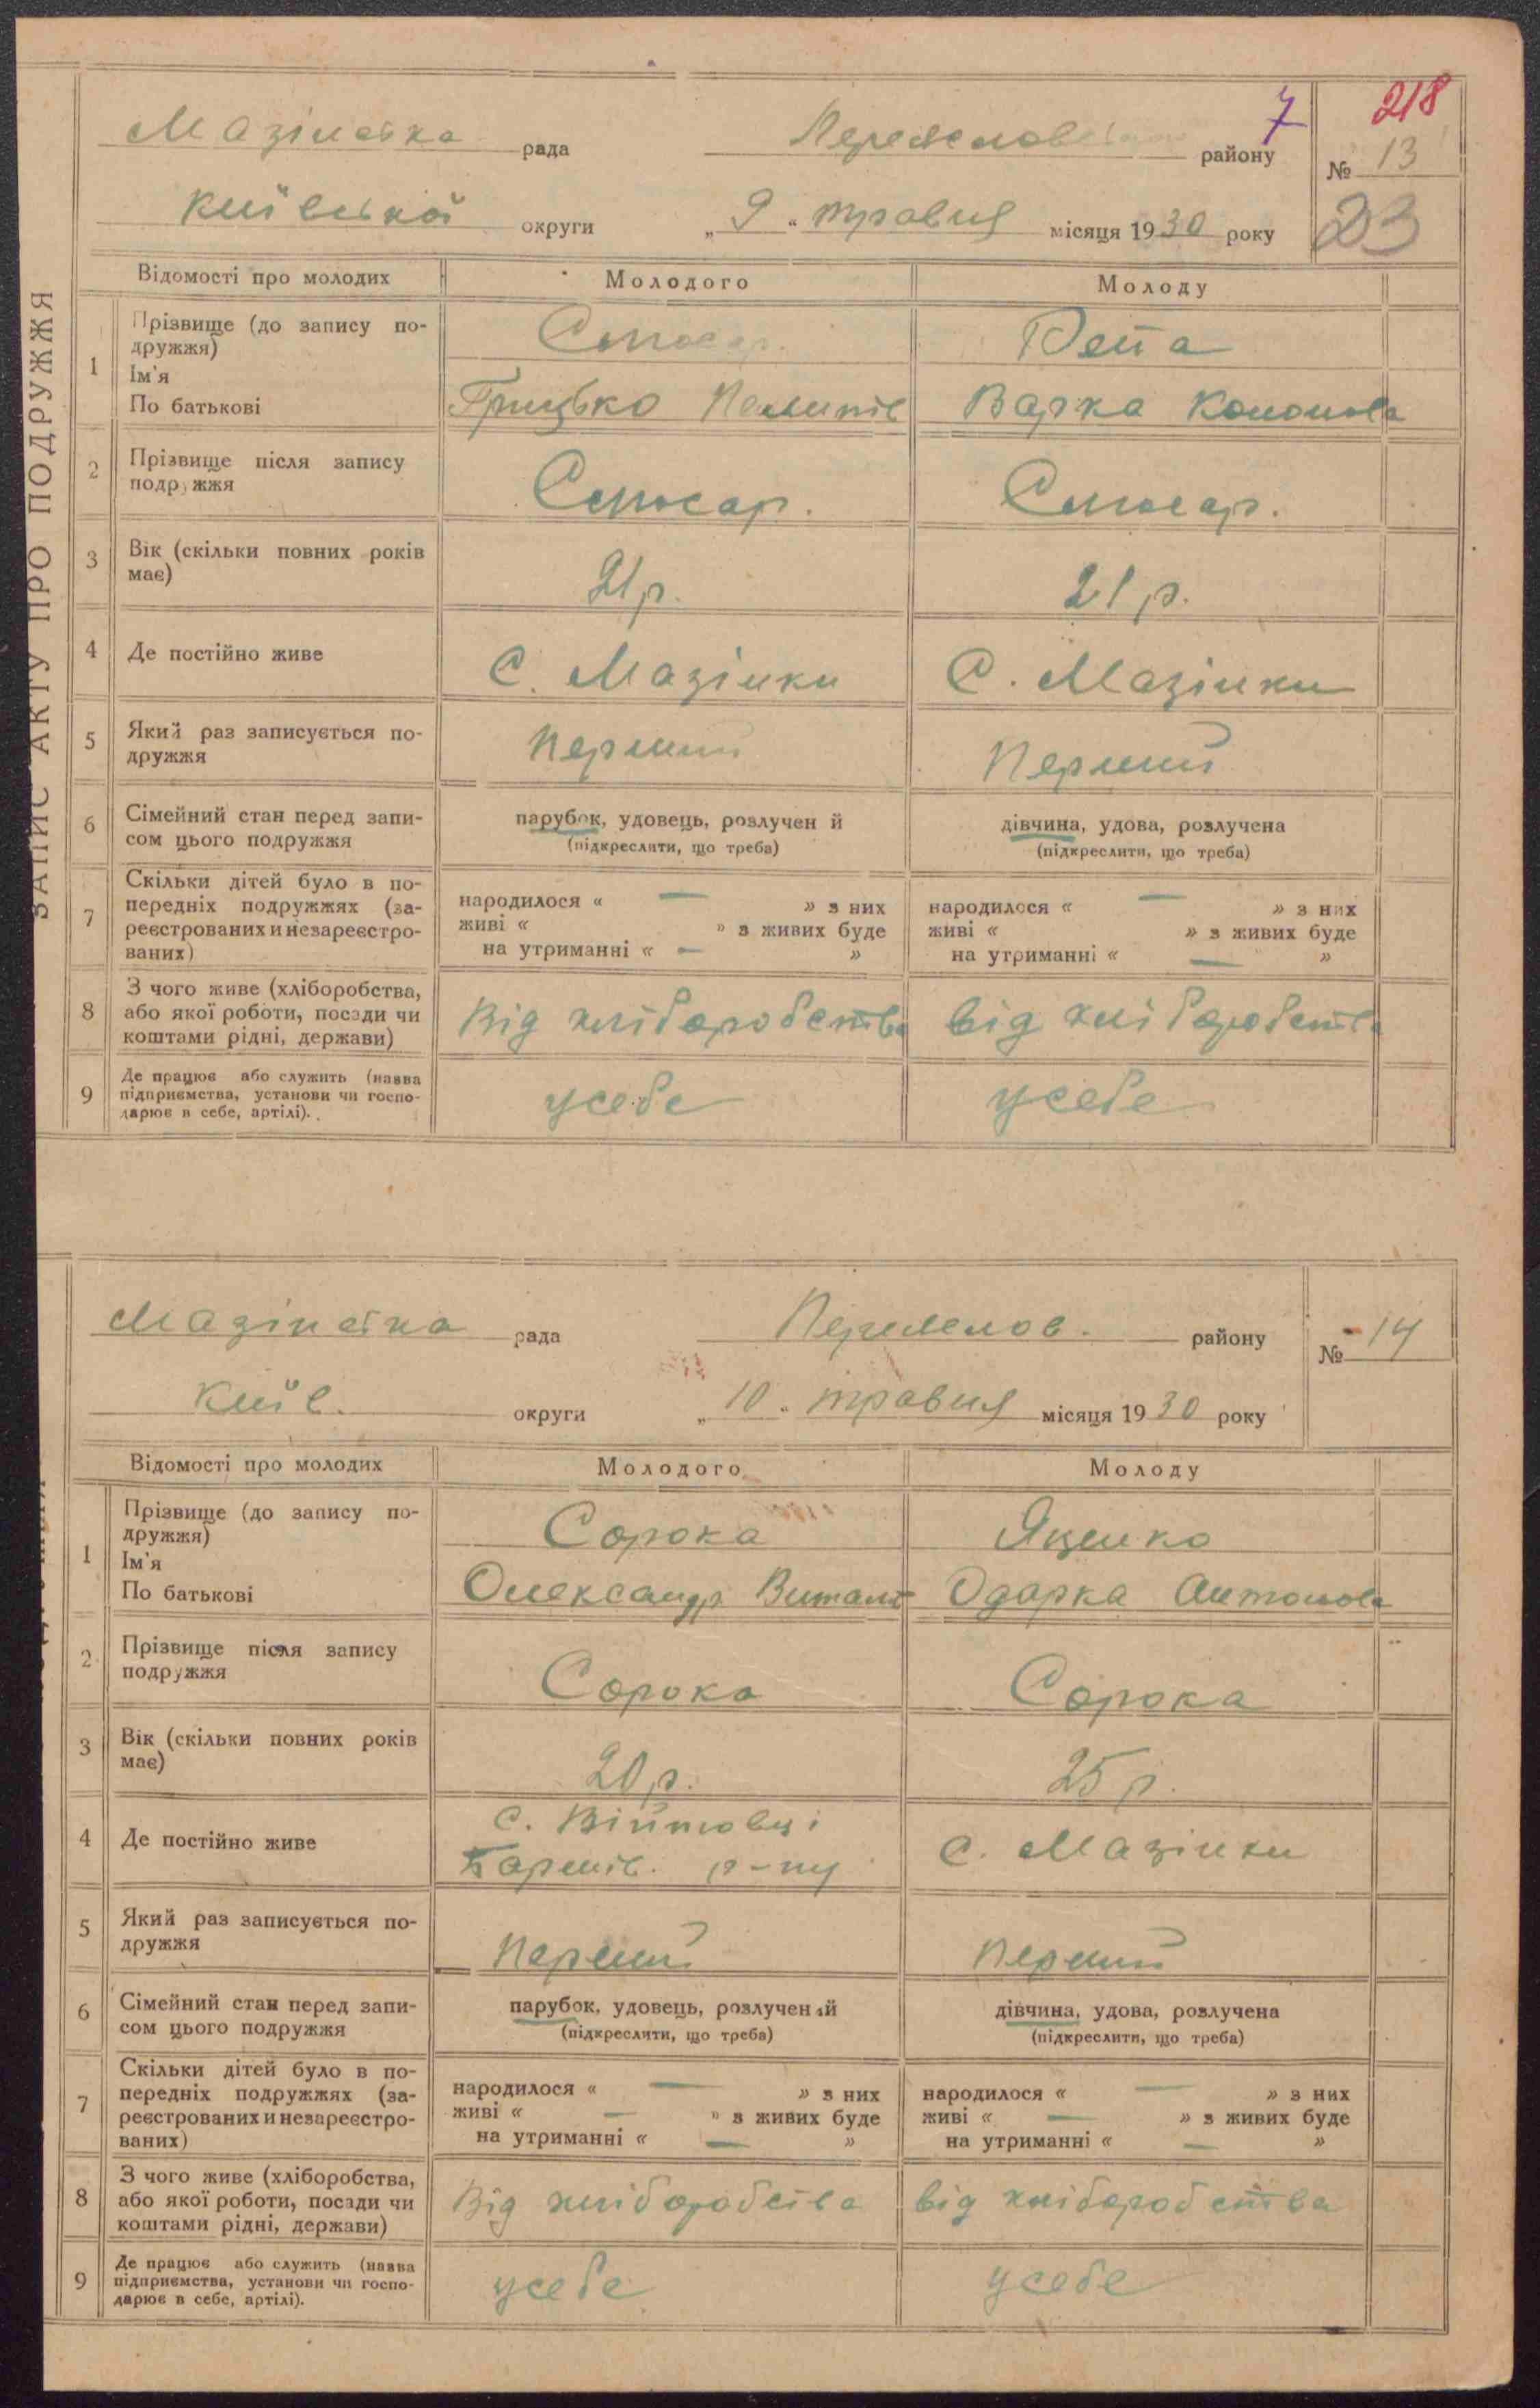 ЗАПИС АКТУ ПРО ПОДРУЖЖЯ
7 218
Мазінська рада району № 13
Київської округи „ 9 “ травня місяця 1930 року 23
Відомості про молодих Молодого Молоду
1 Прізвище (до запису по-
дружжя)
Ім'я
По батькові
Слюсар. Репа
Грицько Пилипів Варка Кононова
2 Прізвище після запису
подружжя
Слюсар. Слюсар.
3 Вік (скільки повних років
має)
21 р. 21 р.
4 Де постійно живе С. Мазінки С. Мазінки
5 Який раз записується по-
дружжя
Перший Перший
6 Сімейний стан перед запи-
сом цього подружжя
парубок, удовець, розлучен й дівчина, удова, розлучена
(підкреслити, що треба) (підкреслити, що треба)
7 Скільки дітей було в по-
передніх подружжях (за-
реєстрованих и незареєстро-
ваних)
народилося « — » з них народилося « — » з них
живі « » з живих буде живі « » з живих буде
на утриманні « — » на утриманні « — »
8 З чого живе (хліборобства,
або якої роботи, посади чи
коштами рідні, держави)
Від хліборобства від хліборобства
9 Де працює або служить (назва
підприємства, установи чи госпо-
дарює в себе, артілі).
усебе усебе
Мазінська рада району № 14
Київ. округи „ 10 “ травня місяця 1930 року
Відомості про молодих Молодого Молоду
1 Прізвище (до запису по-
дружжя)
Ім'я
По батькові
Сорока Яценко
Олександр Одарка Антонова
2 Прізвище після запису
подружжя
Сорока Сорока
3 Вік (скільки повних років
має)
20 р. 25 р.
4 Де постійно живе
с. Війтовці
р-ну с. Мазінки
5 Який раз записується по-
дружжя
Перший перший
6 Сімейний стан перед запи-
сом цього подружжя
парубок, удовець, розлучений дівчина, удова, розлучена
(підкреслити, що треба) (підкреслити, що треба)
7 Скільки дітей було в по-
передніх подружжях (за-
реєстрованих и незареєстро-
ваних)
народилося « — » з них народилося « — » з них
живі « — » з живих буде живі « — » з живих буде
на утриманні « — » на утриманні « — »
8 З чого живе (хліборобства,
або якої роботи, посади чи
коштами рідні, держави)
Від хліборобства від хліборобства
9 Де працює або служить (назва
підприємства, установи чи госпо-
дарює в себе, артілі).
усебе усебе